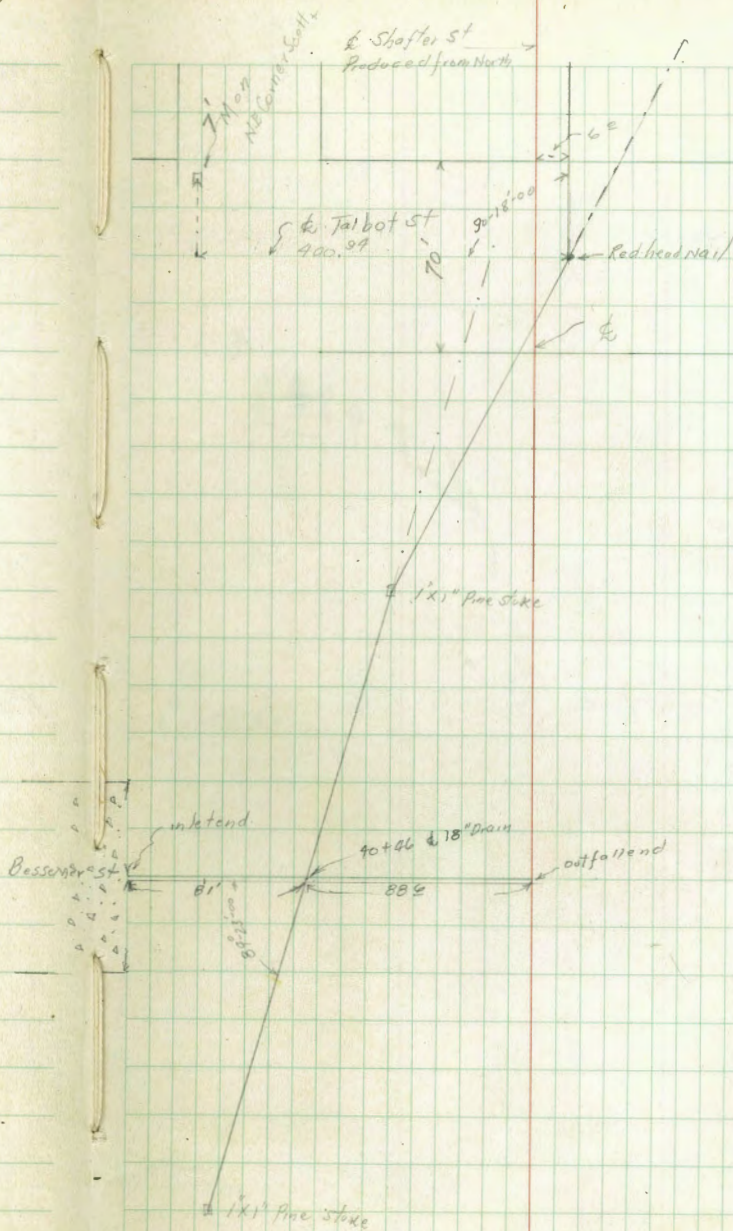 ℄ Shafter St
Produced from North
7'
Mon
NE Corner Scott
6º
℄ Talbot St
400.94
70'
90-18'-00
Red head Nail
℄
1"x1" Pine Stake
inlet end
40+46 ℄ 18" Drain
Bessemer St
outfall end
81'
88
1"x1" Pine Stake